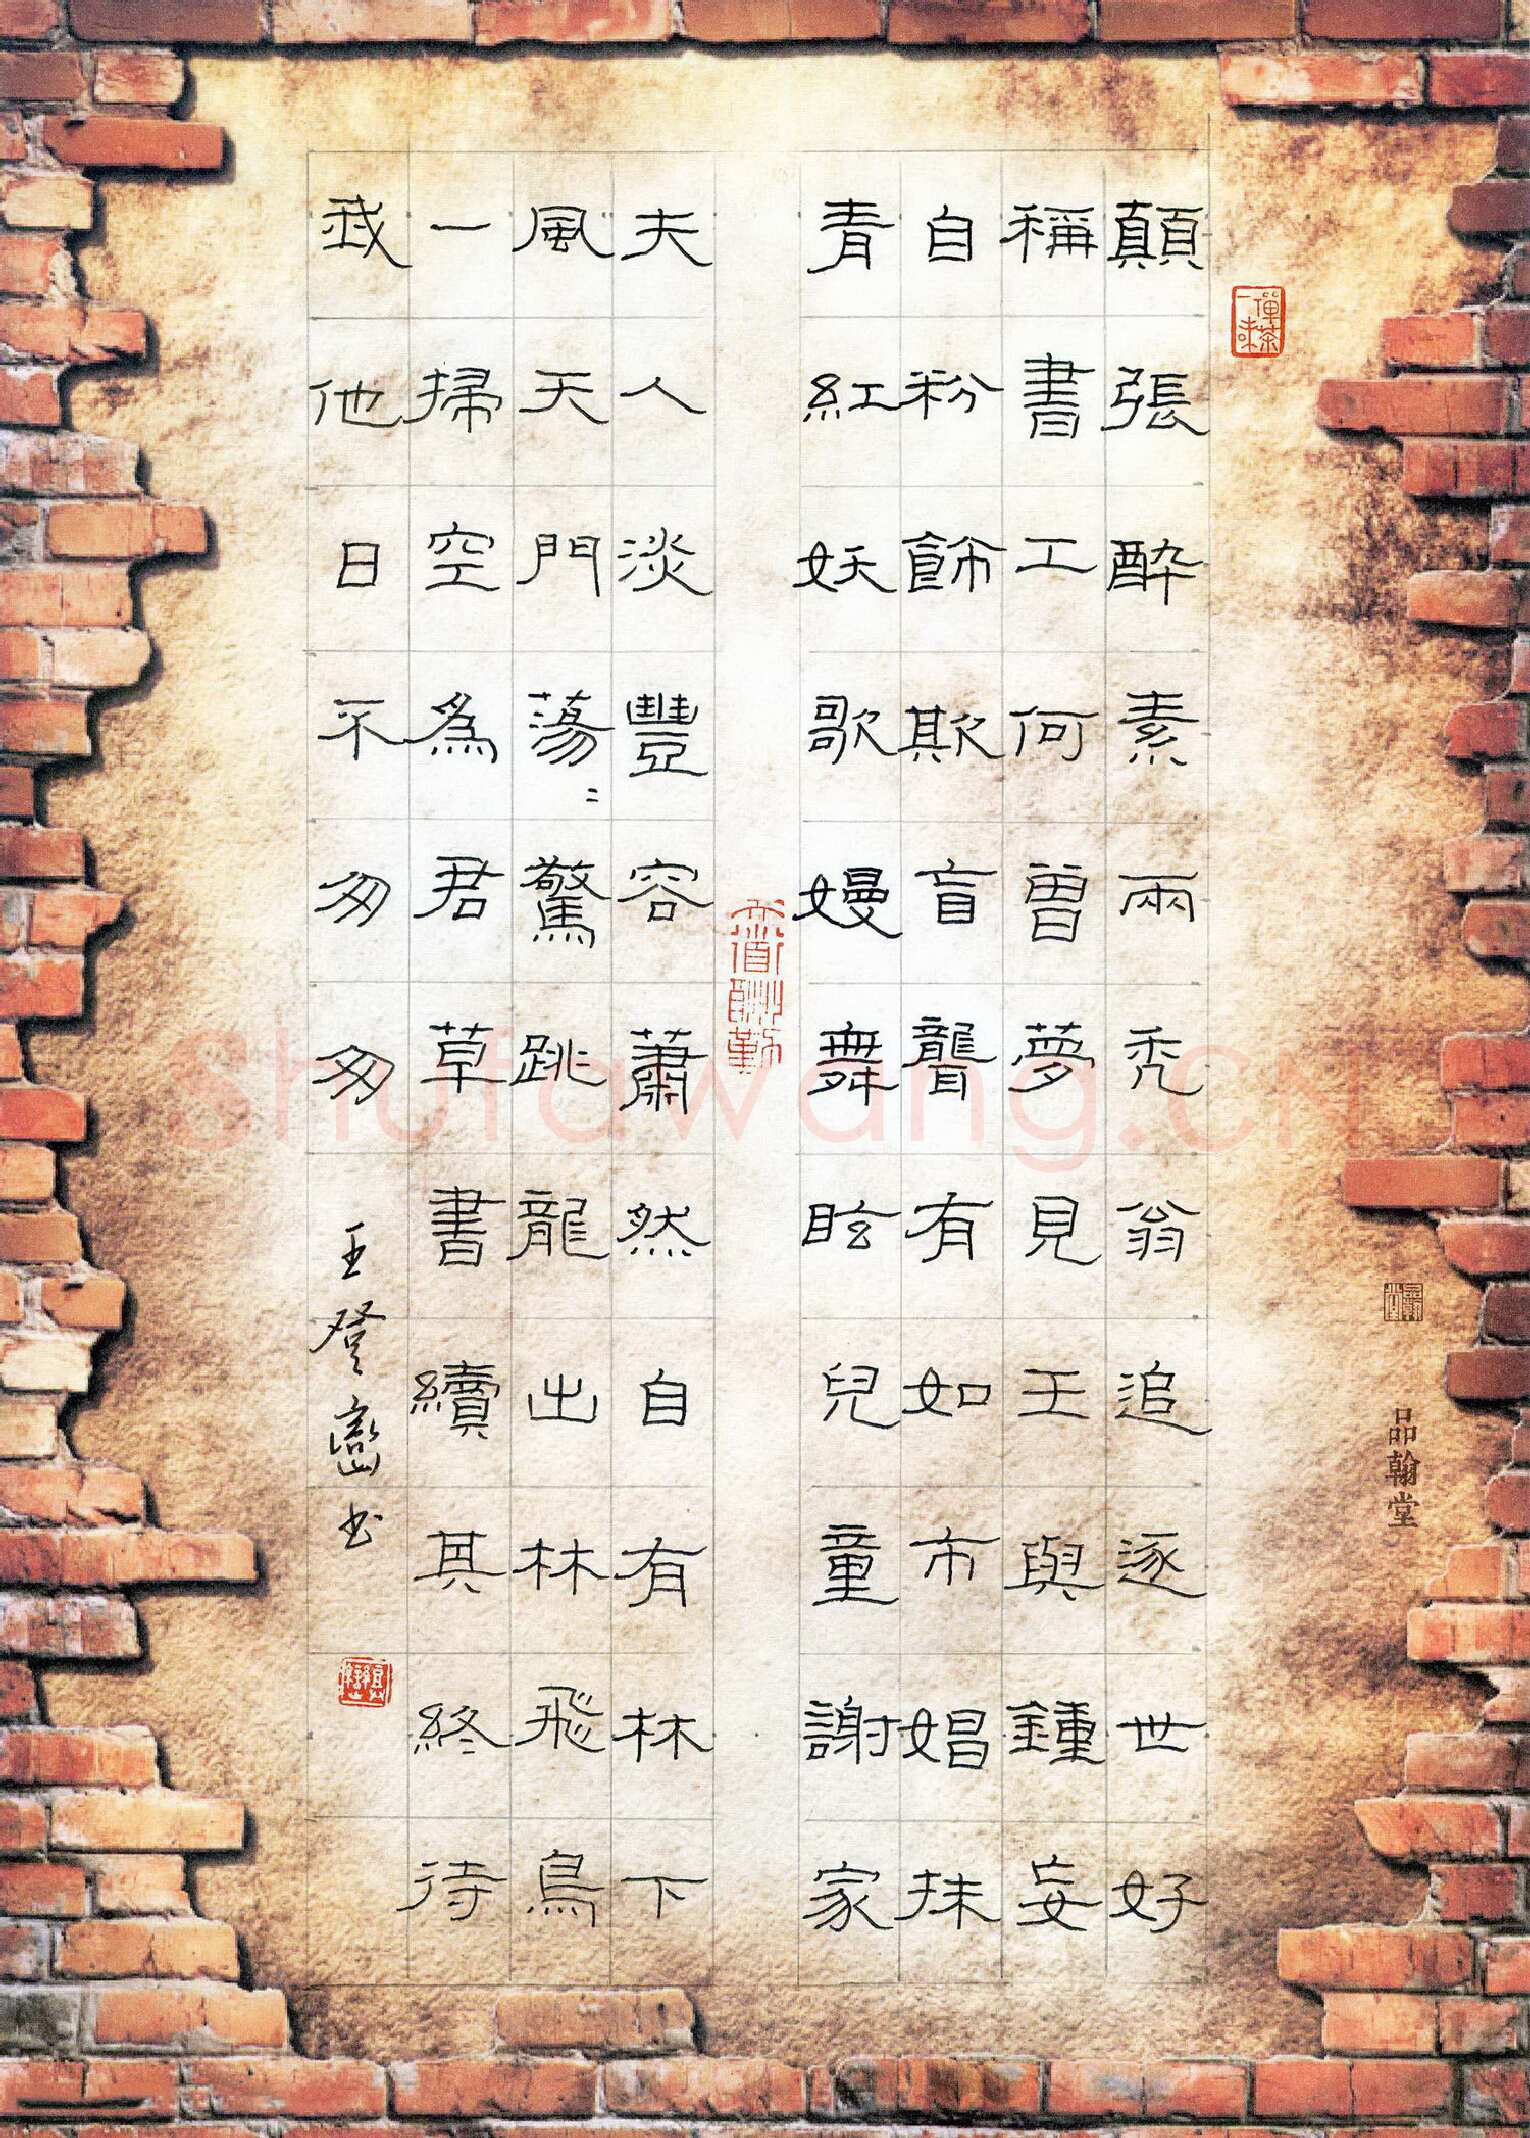 禪茶一味
顛張醉素兩禿翁追逐世好
稱書工何曾夢見王與鍾妄
自粉飾欺盲聾有如市娼抹
青紅妖歌嫚舞眩兒童謝家
天道酬勤
夫人淡豐容蕭然自有林下
風天門蕩〻驚跳龍出林飛鳥
一掃空為君草書續其終待
我他日不匆匆
王登巒书
品翰堂
shufawang.cn